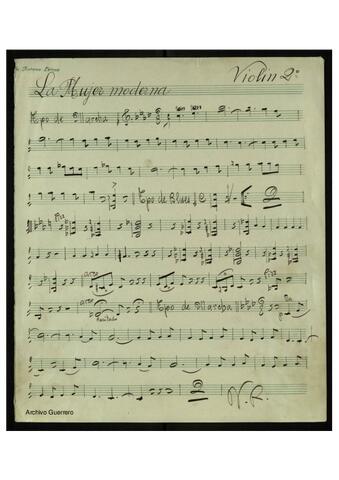 Violin 2º
La Mujer moderna
Tpo de Marcha
Tpo de Blues
2
pizz
arco pizz
arco Tpo de Marcha
2
Archivo Guerrero